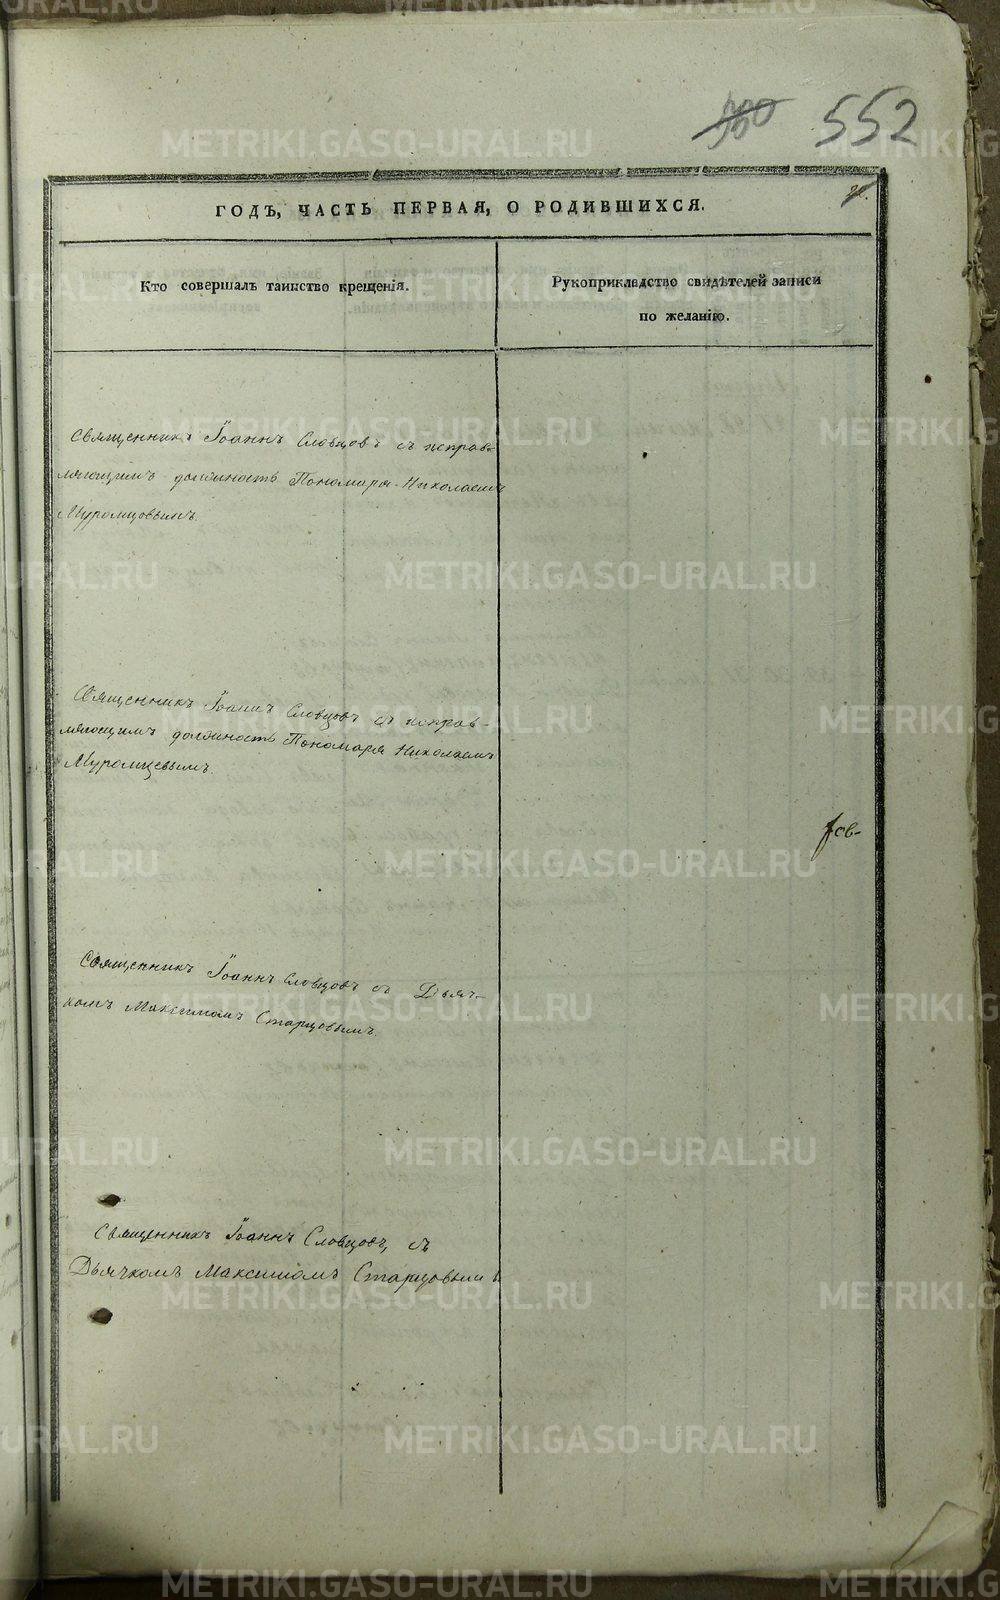 552
ГОДЪ, ЧАСТЬ ПЕРВАЯ, О РОДИВШИХСЯ.
Кто совершалъ таинство крещенія.
Рукоприкладство свидѣтелей записи
по желанію.
Священникъ Іоаннъ Словцовъ съ исправ-
ляющимъ должность Пономаря Николаемъ
Муромцовымъ.
Священникъ Іоаннъ Словцовъ съ исправ-
ляющимъ должность Пономаря Николаемъ
Муромцевымъ.
Священникъ Іоаннъ Словцовъ съ Дьяч-
комъ Максимомъ Старцовымъ.
Священникъ Іоаннъ Словцовъ, съ
Дьячкомъ Максимомъ Старцовымъ
METRIKI.GASO-URAL.RU